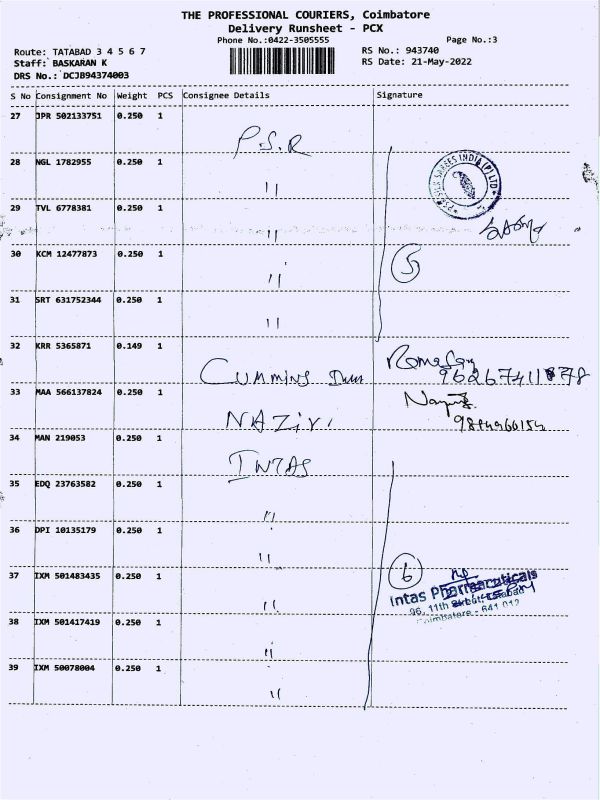 THE PROFESSIONAL COURIERS, Coimbatore
Delivery Runsheet - PCX
Phone No.:0422-3505555
Page No.:3
Route: TATABAD 3 4 5 6 7
RS No.: 943740
Staff: BASKARAN K
RS Date: 21-May-2022
DRS No.: DCJB94374003
S No Consignment No Weight PCS Consignee Details Signature
27 JPR 502133751 0.250 1
P.S.R
28 NGL 1782955 0.250 1
"
29 TVL 6778381 0.250 1
"
30 KCM 12477873 0.250 1
"
5
31 SRT 631752344 0.250 1
"
32 KRR 5365871 0.149 1
CUMMINS
33 MAA 566137824 0.250 1
NAZIR
34 MAN 219053 0.250 1
INTAS
35 EDQ 23763582 0.250 1
"
36 DPI 10135179 0.250 1
"
6
37 IXM 501483435 0.250 1
"
Intas Pharmaceuticals
96, 11th Street, Tatabad
Coimbatore - 641 012
38 IXM 501417419 0.250 1
"
39 IXM 50078004 0.250 1
"